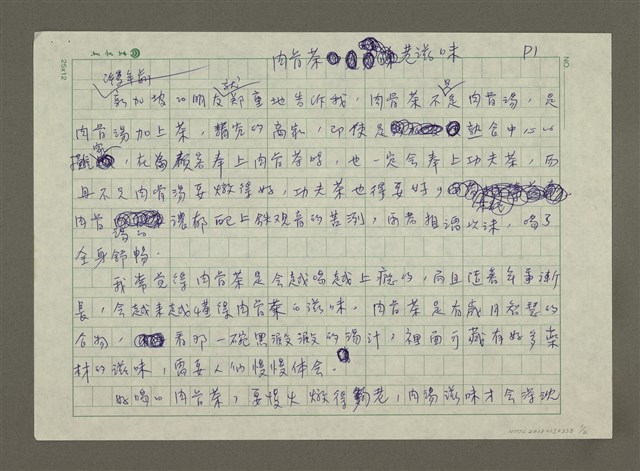 肉骨茶 老滋味 P1
25x12 NO.
幾年前
新加坡的朋友就鄭重地告訴我，肉骨茶不只是肉骨湯，是
肉骨湯加上茶，講究的商家，即使是熱食中心的
攤家，在為顧客奉上肉骨茶時，也一定會奉上功夫茶，而
且不只肉骨湯要燉得好，功夫茶也得要好，
肉骨湯的濃郁配上鐵觀音的苦洌，兩者相調以沫，喝了
全身舒暢。
我常覺得肉骨茶是會越喝越上癮的，而且隨著年事漸
長，會越來越懂得肉骨茶的滋味。肉骨茶是有歲月智慧的
食物，看那一碗黑澉澉的湯汁，裡面可藏有好多藥
材的滋味，需要人們慢慢体会。
好喝的肉骨茶，要慢火燉得夠老，肉湯滋味才会浮沈